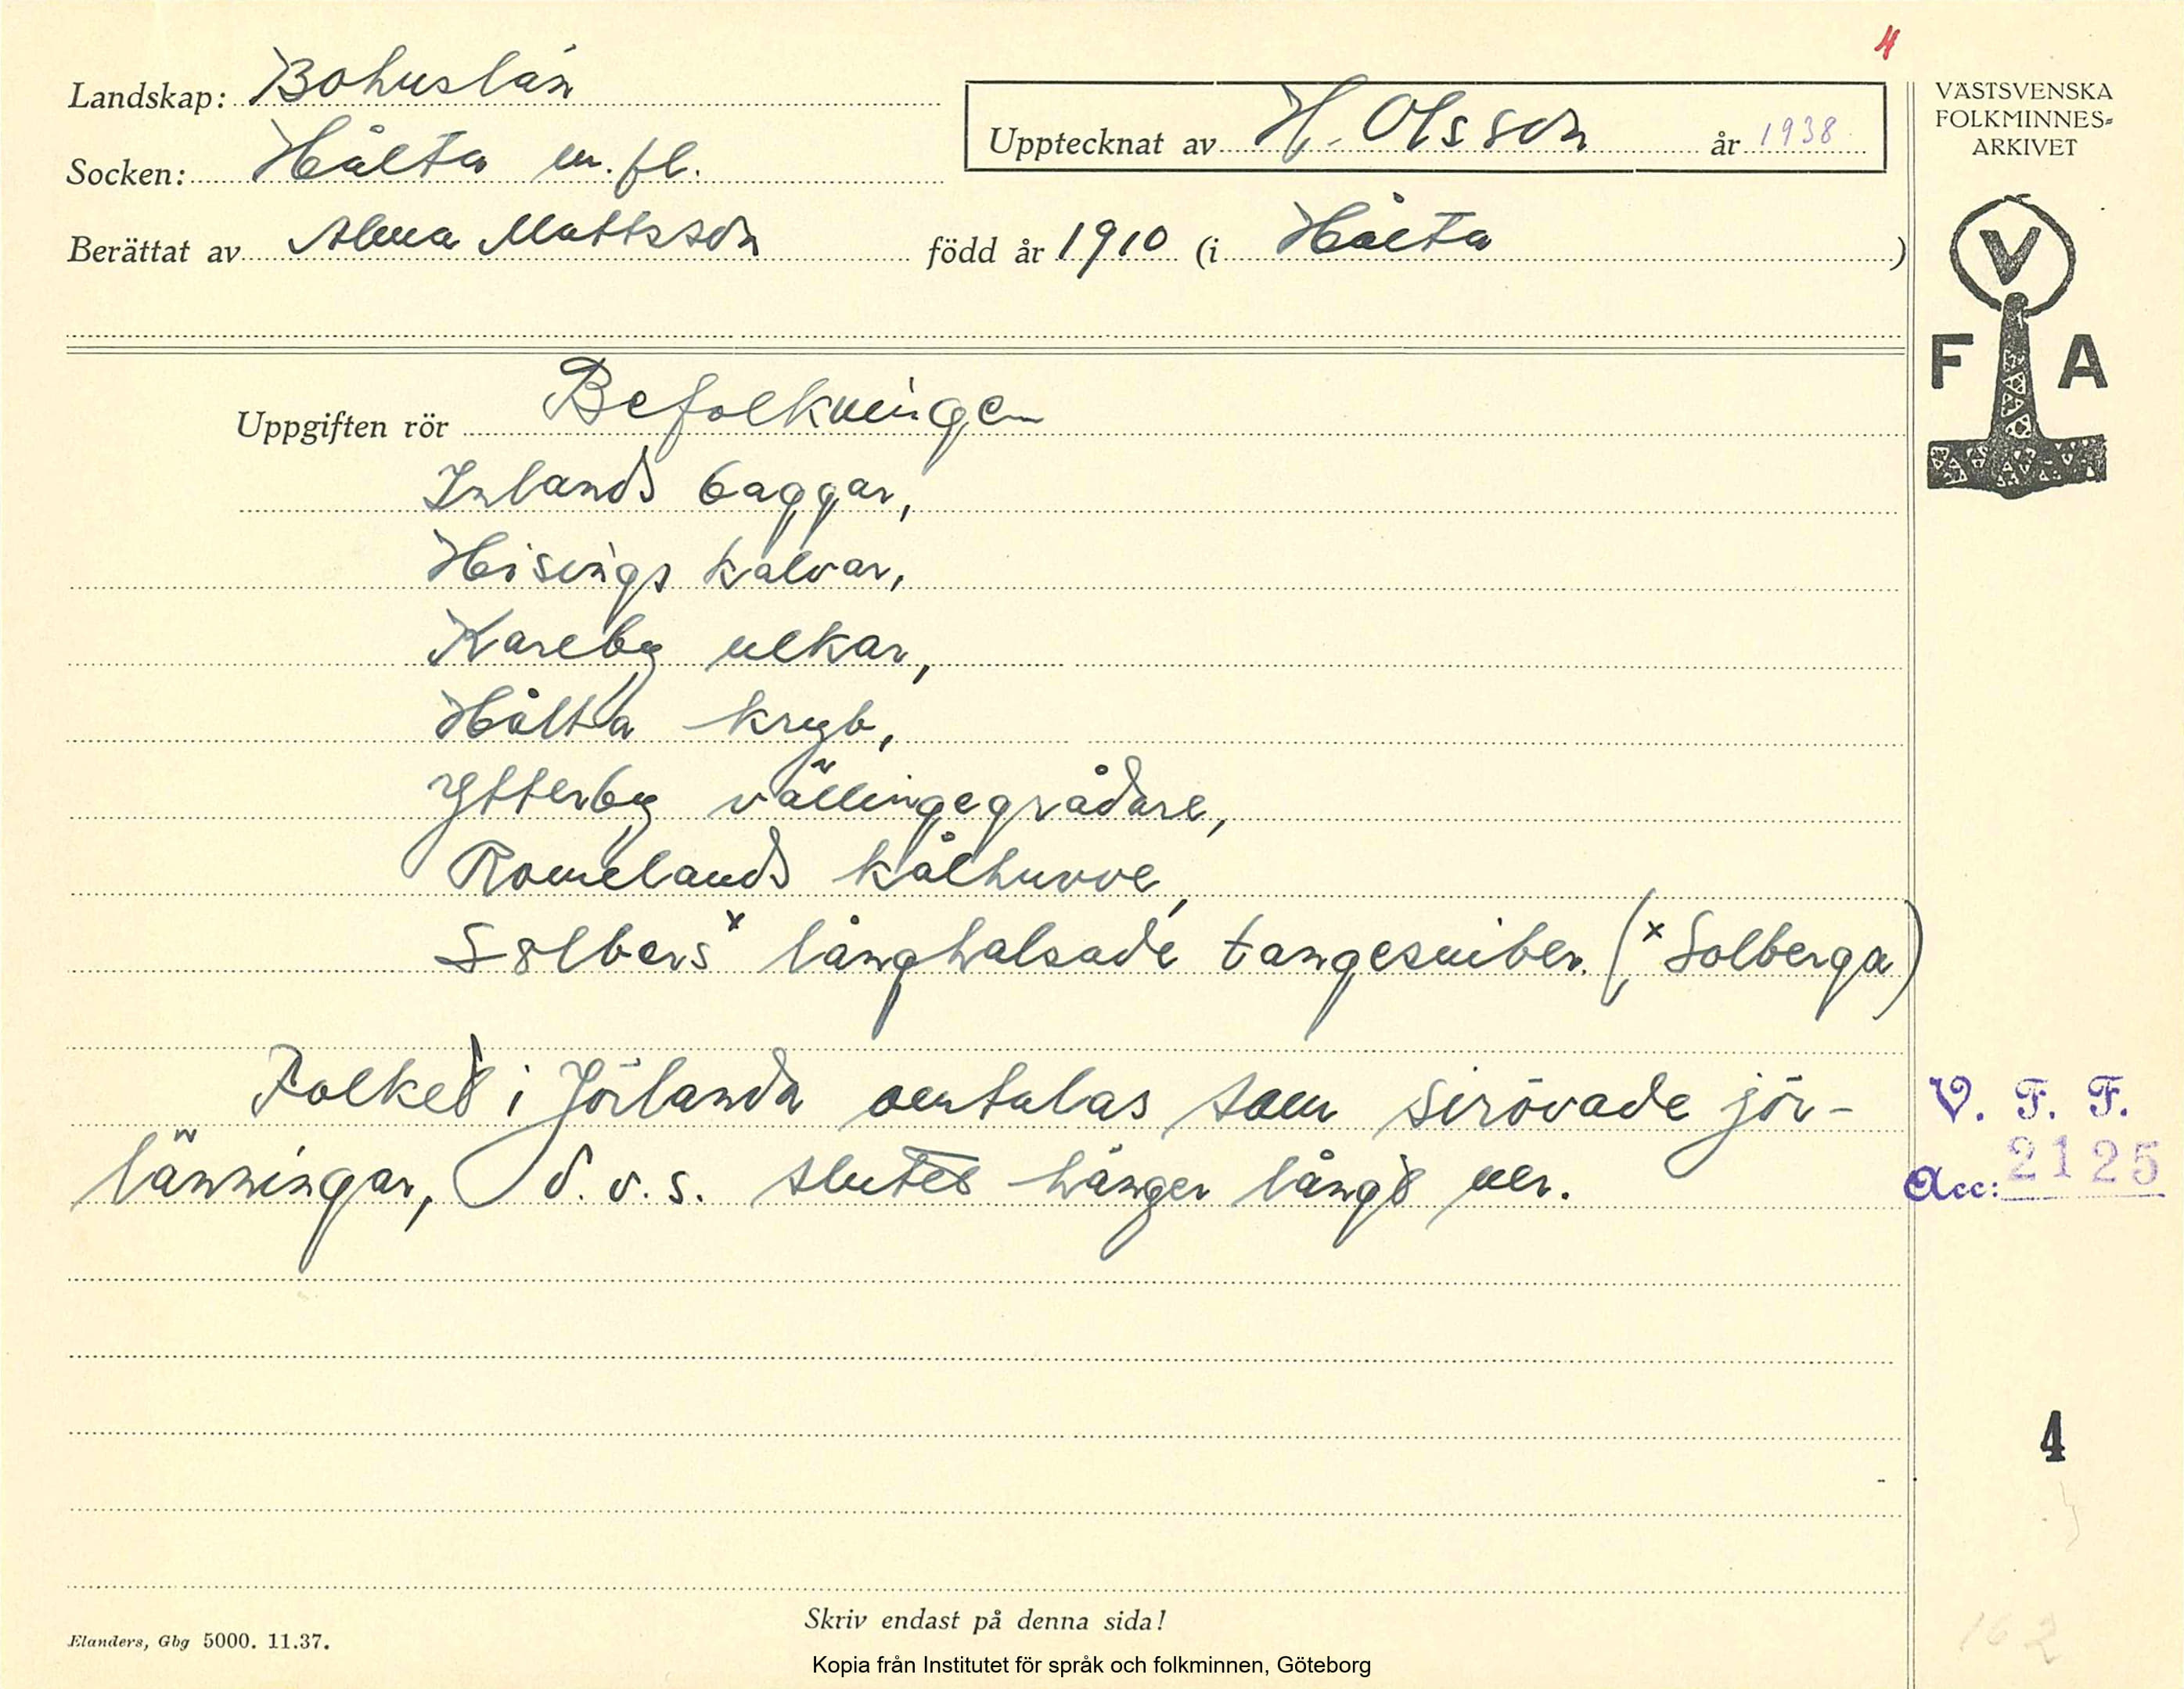 4
Landskap: Bohuslän
Socken: Hålta m.fl.
Berättat av Alma Mattsson född år 1910 (i Hålta )
Upptecknat av H. Olsson år 1938
VÄSTSVENSKA
FOLKMINNES=
ARKIVET
V
F A
Uppgiften rör Befolkningen
Inlands baggar,
Hisings kalvar,
Kareby ulkar,
Hålta kryb,
Ytterby vällingegrådare,
Romelands kålhuvve,
Solbers x långhalsade tangesniber. (x Solberga)
Folket i Jörlanda omtalas som sirövade jör-
länningar, d.v.s. slutet hänger långt ner.
V. F. F.
Acc: 2125
4
162
Skriv endast på denna sida!
Elanders, Gbg 5000. 11.37.
Kopia från Institutet för språk och folkminnen, Göteborg